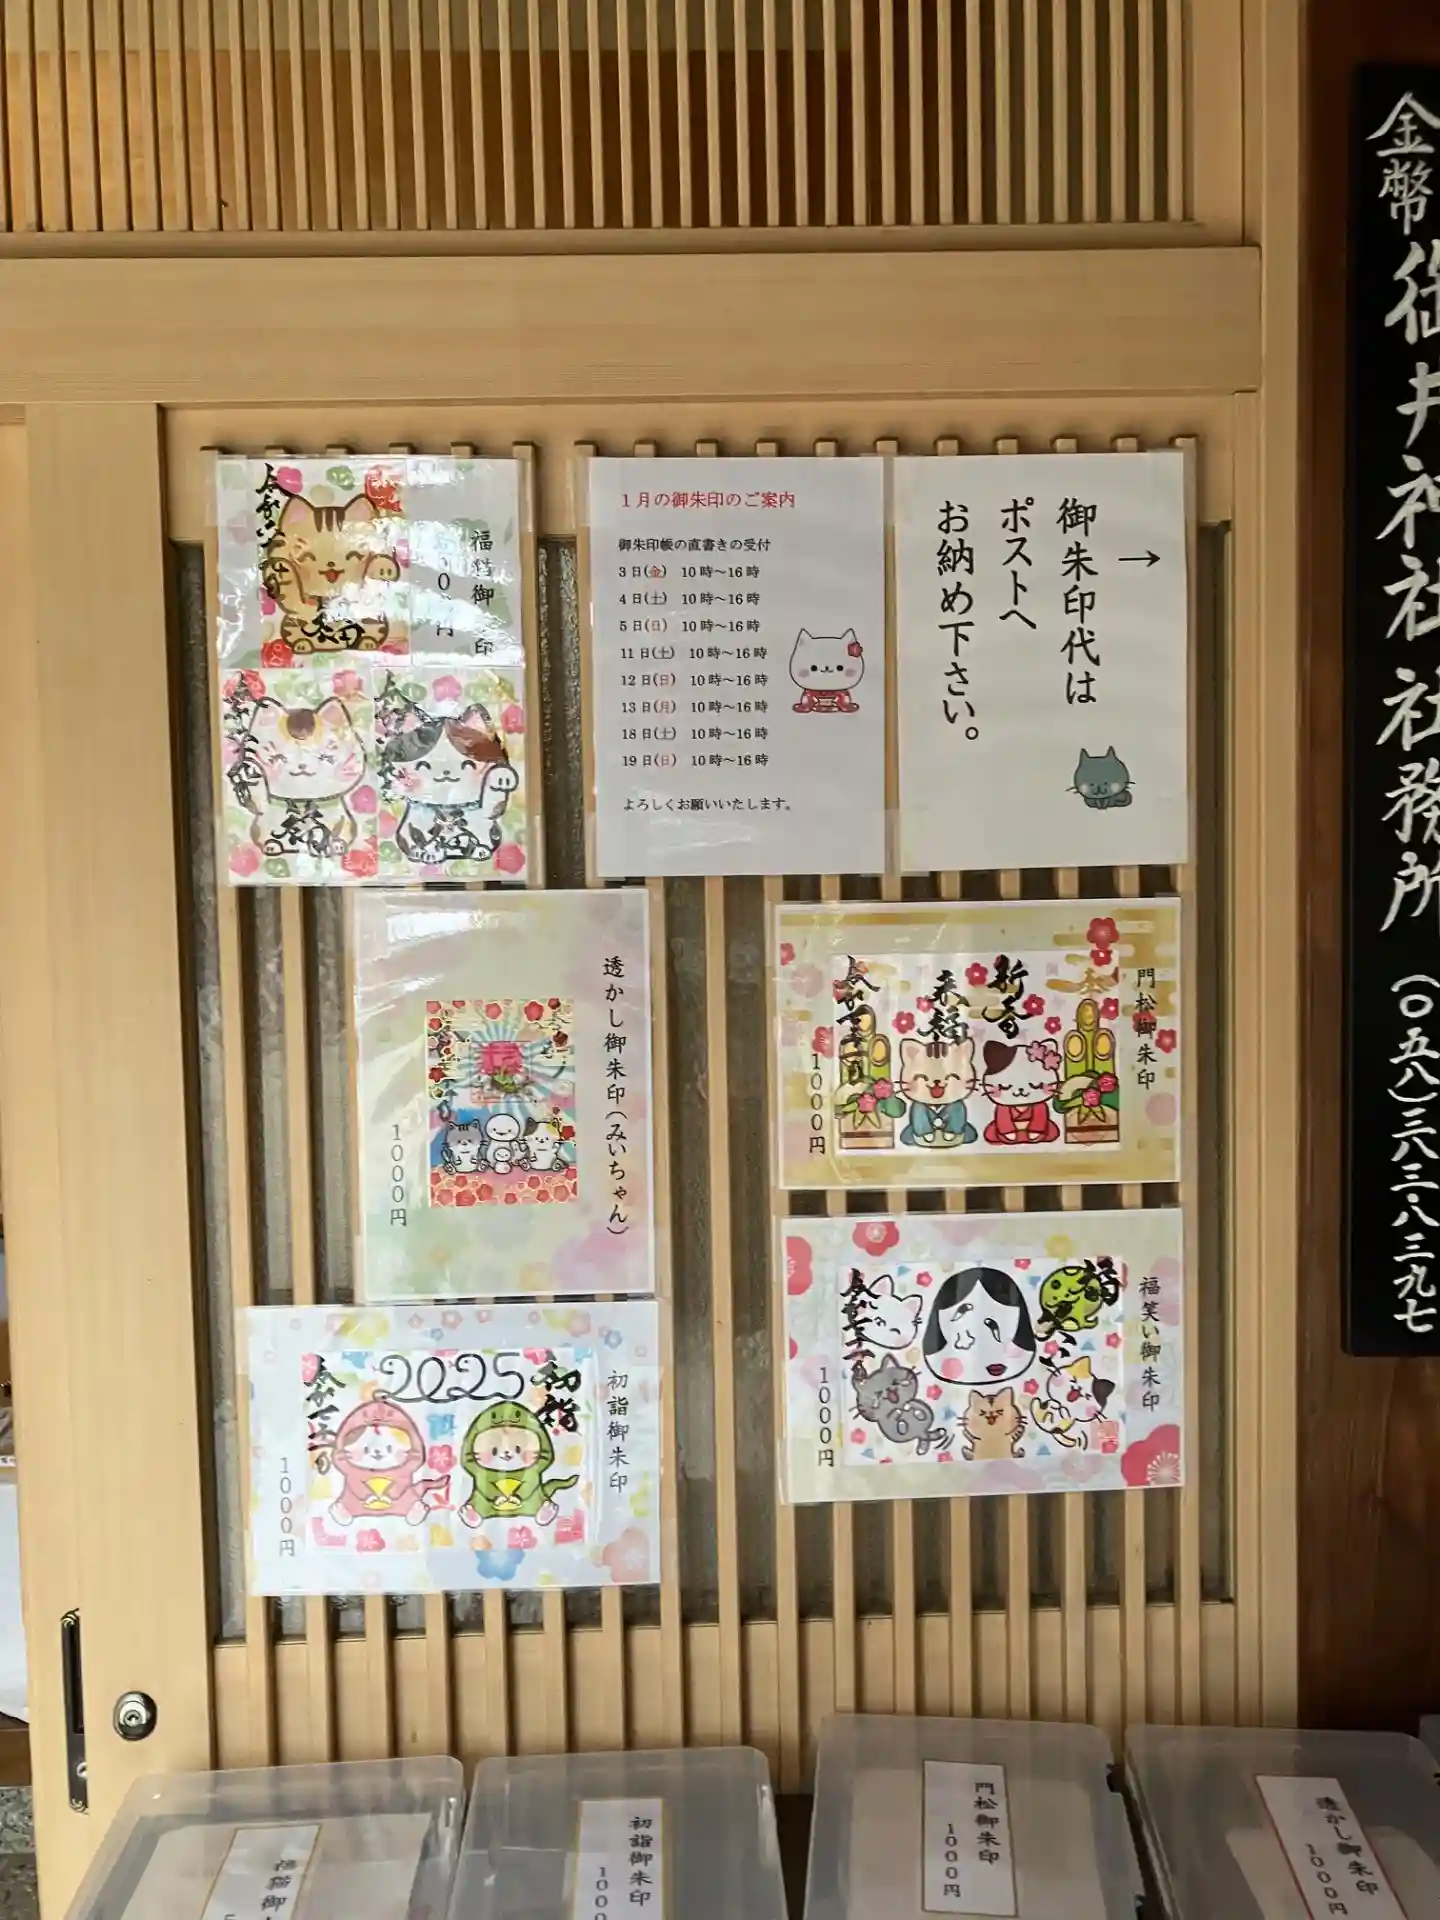 1月の御朱印のご案内
御朱印帳の直書きの受付
3日(金) 10時～16時
4日(土) 10時～16時
5日(日) 10時～16時
11日(土) 10時～16時
12日(日) 10時～16時
13日(月) 10時～16時
18日(土) 10時～16時
19日(日) 10時～16時
よろしくお願いいたします。
→
御朱印代は
ポストへ
お納め下さい。
福
福
福
透かし御朱印(みいちゃん)
1000円
門松御朱印
新春
来福
1000円
初詣御朱印
2025
初詣
1000円
福笑い御朱印
福笑い
1000円
金幣
御井神社社務所
(〇五八)三八三・八三九七
初詣御朱印
門松御朱印
1000円
透かし御朱印
1000円